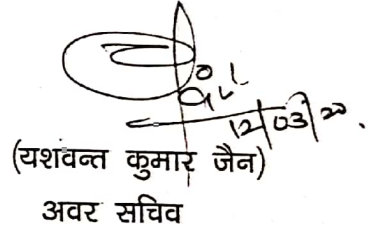 12/03/20.
(यशवन्त कुमार जैन)
अवर सचिव